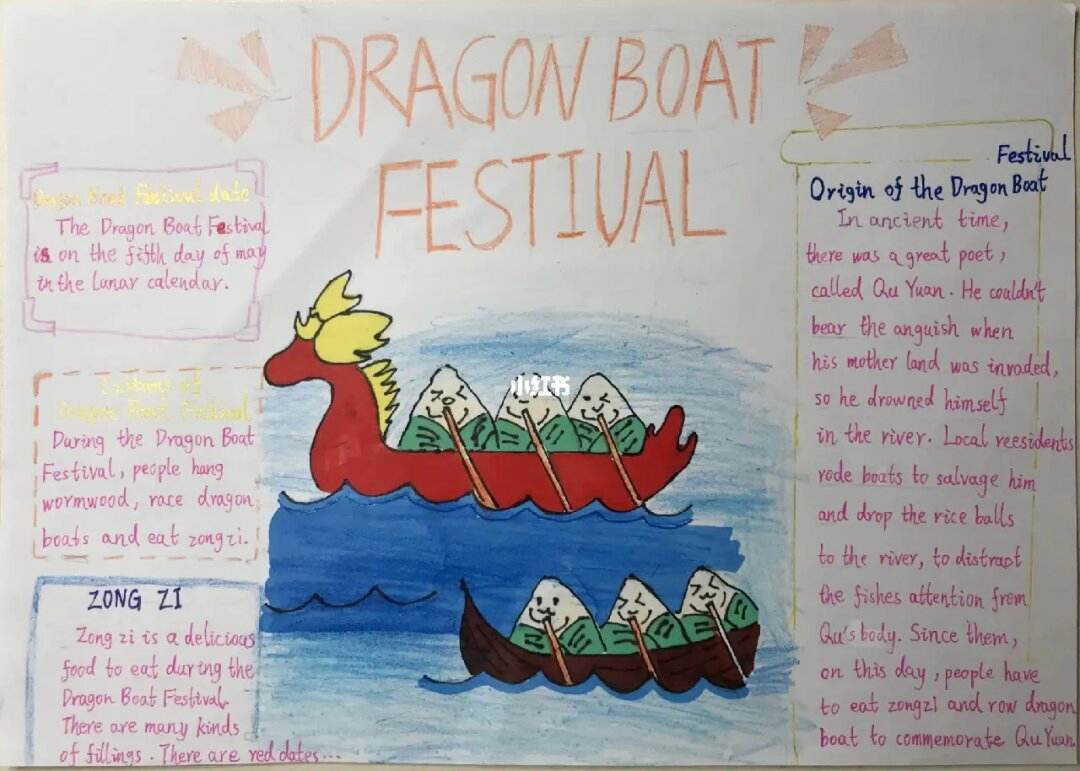 DRAGON BOAT
FESTIVAL
Dragon Boat Festival date
The Dragon Boat Festival
is on the fifth day of may
in the lunar calendar.
Customs of
Dragon Boat Festival
During the Dragon Boat
Festival, people hang
wormwood, race dragon
boats and eat zongzi.
ZONG ZI
Zong zi is a delicious
food to eat during the
Dragon Boat Festival.
There are many kinds
of fillings. There are red dates...
小红书
Festival
Origin of the Dragon Boat
In ancient time,
there was a great poet,
called Qu Yuan. He couldn't
bear the anguish when
his mother land was invaded,
so he drowned himself
in the river. Local reesidents
rode boats to salvage him
and drop the rice balls
to the river, to distract
the fishes attention from
Qu's body. Since them,
on this day, people have
to eat zongzi and row dragon
boat to commemorate Qu Yuan